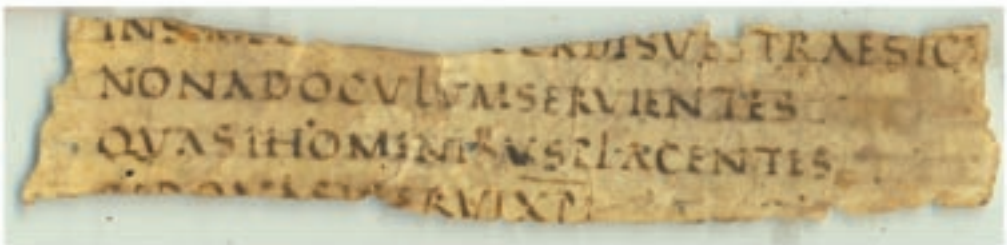 RDISVESTRAESIC
NONADOCVLVMSERVIENTES
QVASIHOMINIBVSPLACENTES
SERVIXPI